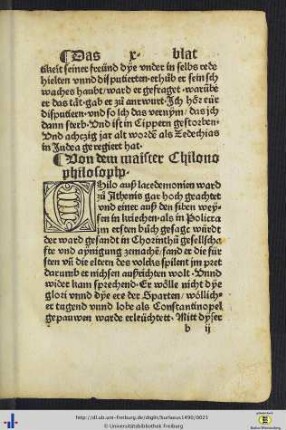 ¶Das x· blat
tikeit seiner freünd dye vnder in selbs rede
hielten vnnd disputierten· erhůb er sein sch
waches haubt/ ward er gefraget· warübe
er das tåt· gab er zů antwurt· Ich hör eür
disputiern/ vnd so ich das vernym/ das ich
dann sterb· Vnd ist in Cippern gestorben·
Vnd achczig jar alt wordē als Zedechias
in Judea geregiert hat·
¶Von dem maister Chilono
philosopho·
Chilo auß lacedemonien ward
zů Athenis gar hoch geachtet
vnd einer auß den siben wey-
sen in kriechen· als in Policra
jm ersten bůch gesagt würdt
der ward gesandt in Chorinthū gesellscha
fft vnd aynigung zemachē/ fand er die für
sten vñ die eltern des volcks spilent jm pret
darumb er nichsen außrichten wolt· Vnnd
wider kam sprechend· Er wölle nicht dye
glori vnnd dye ere der Sparten/ wöllich-
er tugend vnnd lobe als Constantinopel
gepauwen warde erleüchtett· Mitt dyser
b ij
http://dl.ub.uni-freiburg.de/diglit/burlaeus1490/0021
© Universitätsbibliothek Freiburg